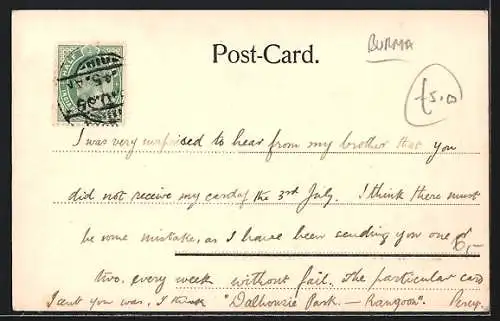 Post-Card.
BURMA
£5.00
I was very surprised to hear from my brother that you
did not receive my card of the 3rd July. I think there must
be some mistake, as I have been sending you one or
6,-
two, every week without fail. The particular card
I sent you was, I think "Dalhousie Park. — Rangoon". Percy.